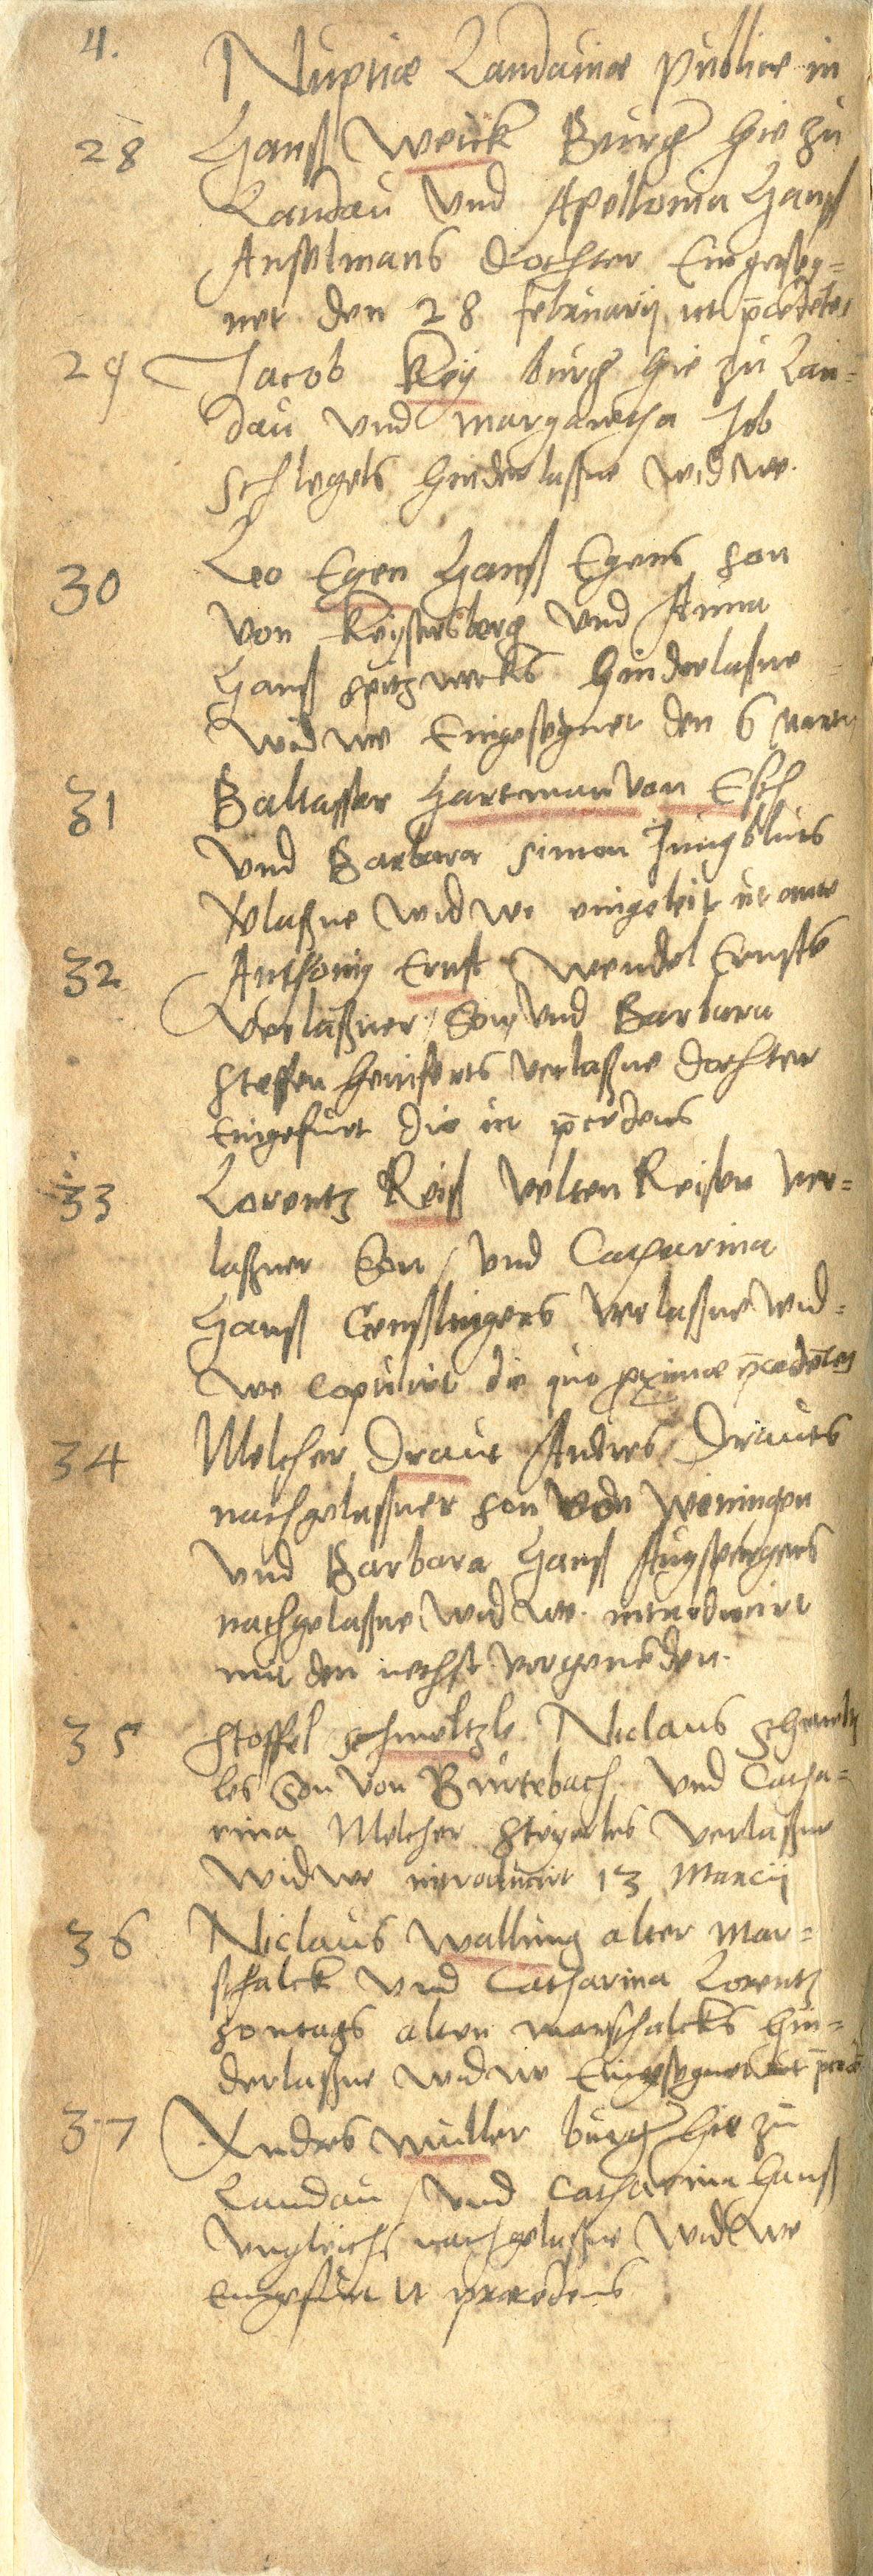 4.
Nuptiæ Landauiæ publice in
28 Hanß Weick Burger hie zu
Landau und Apollonia Hanß
Anselmans dochter Eingeseg=
net den 28 februarij ut
29 Jacob Key burger hie zu Lan=
dau und margaretha Job
Schlegels hinderlaßne widwe.
30 Leo Egen Hanß Egens son
von Keysersberg und Anna
Hanß Spitzwecks hinderlaßne
widwe Eingesegnet den 6 marty
31 Baltasser Hartman von Esch
und Barbara Simon Jungbluts
widwe eingeleit ut
32 Anthoniy Ernst Wendel Ernsts
Verlaßner Son, und Barbara
Steffen verlaßne dochter
Eingefurt die ut
33 Lorentz Reiß Velten Reisen ver=
laßner Son, und Catharina
Hanß Genßlingers Verlaßne wid=
we copulirt die quo
34 Melcher Draut Andres Drauts
nachgelaßner son von Weningen
und Barbara Hanß Augspurgers
nachgelaßne widwe. introducirt
mit den nechst vorgeneden.
35 Stoffel Schmeltzle Niclaus Schmeltz
les Son von Burtebach und Catha=
rina Melcher Steyerles verlaßne
Widwe introducirt 13 Marcij
36 Niclaus Walling alter Mar=
schalck und Catharina Lorentz
Sontags alten marschalcks hin=
derlaßne widwe Eingesegnet ut
37 Andres Muller burger hie zu
Landau, und Catharina Hanß
Vngleichs nachgelaßne Widwe
Eingefurt ut præcedens